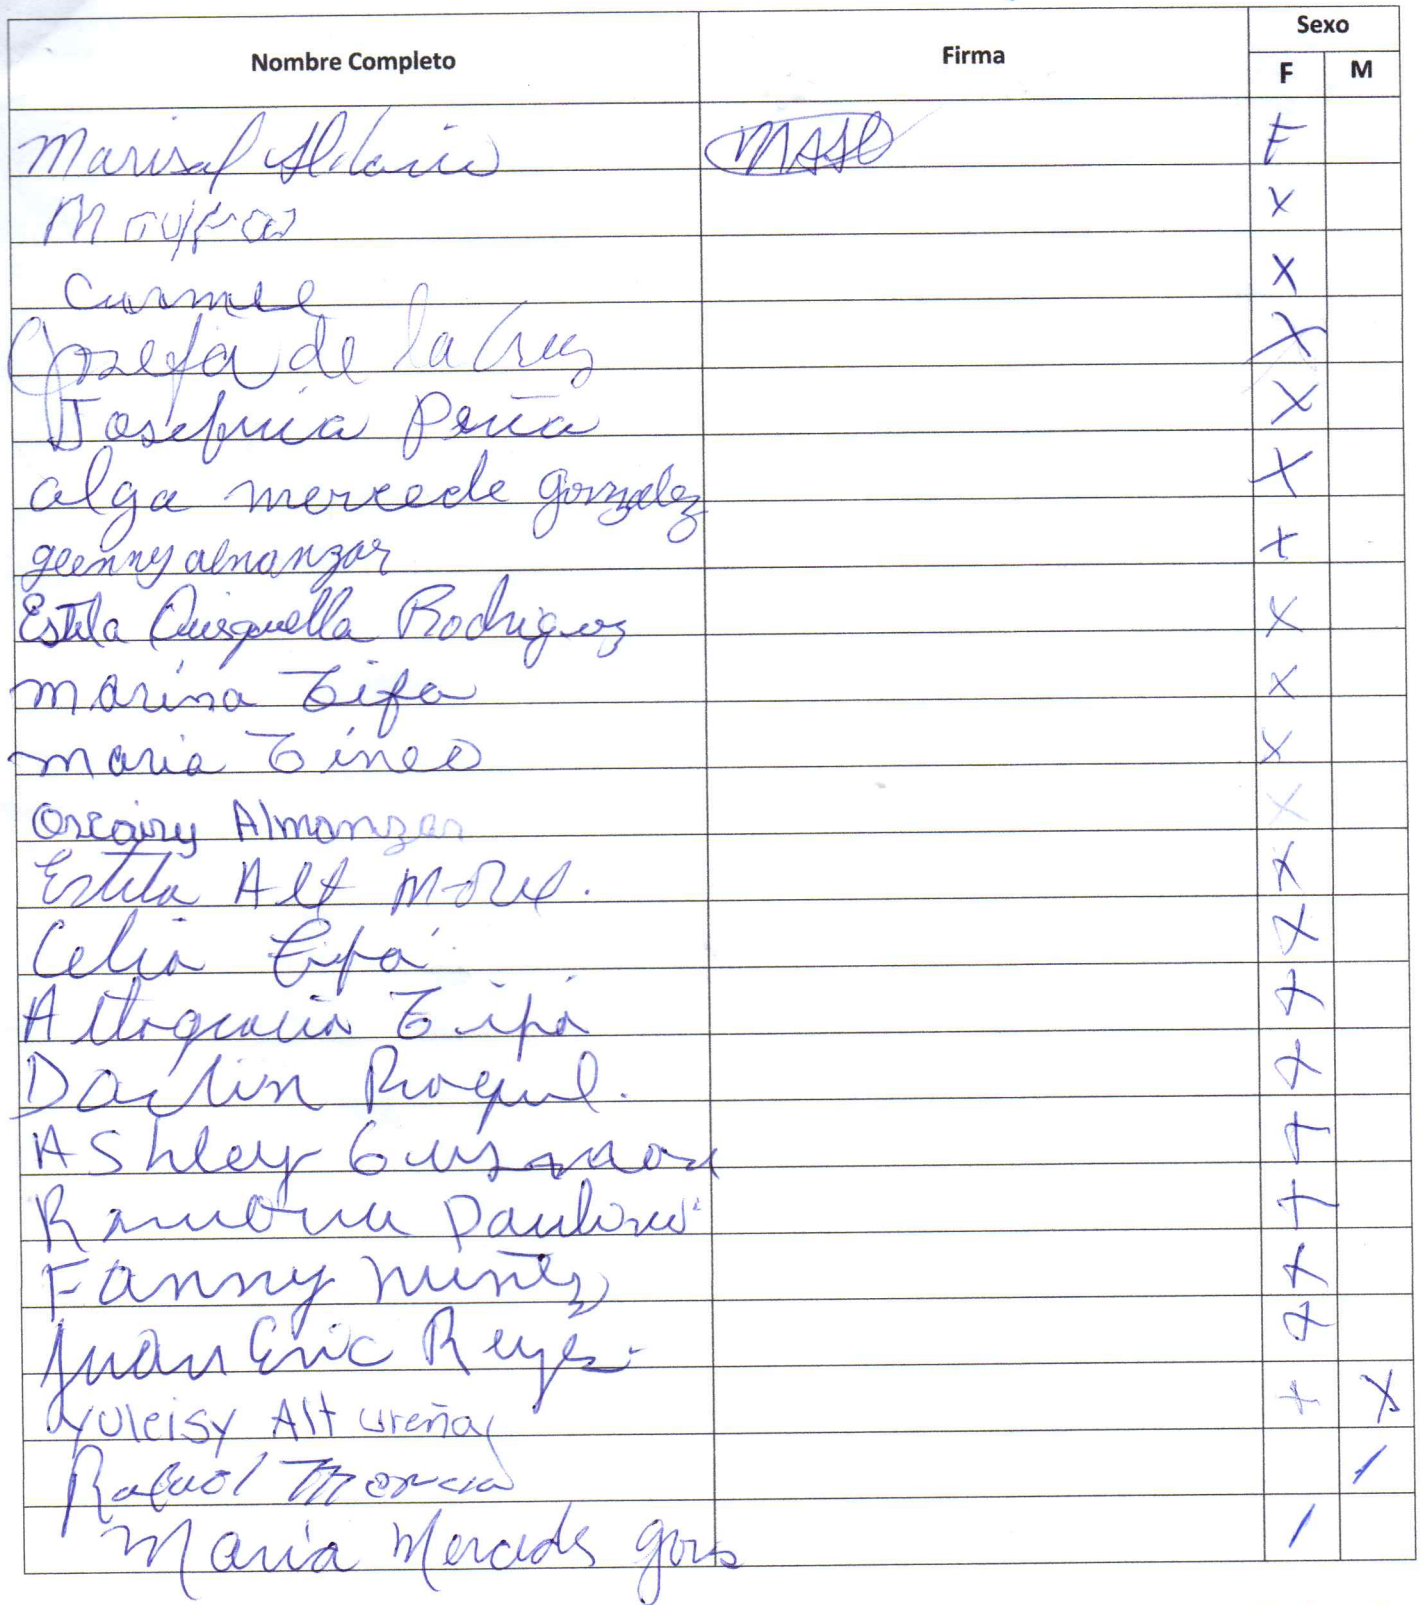 Nombre Completo Firma Sexo
F M
Marisol Hilario MASH F
X
Carmel X
Josefa de la Cruz X
Josefina Peña X
alga mercede gonzalez X
geenny almanzar x
Estela Quisquella Rodriguez X
marina Tifa X
maria Tineo X
Oscairy Almanzar X
Estela Alt Morel. X
Celia Tifa X
Altagracia Tifa X
Dailin Roquel. X
Ashley Gusman X
Ramona Paulino X
Fanny nuñez X
Juan Eric Reyes. X
Yuleisy Alt Ureña X X
Rafael /
Maria Mercedes gons /